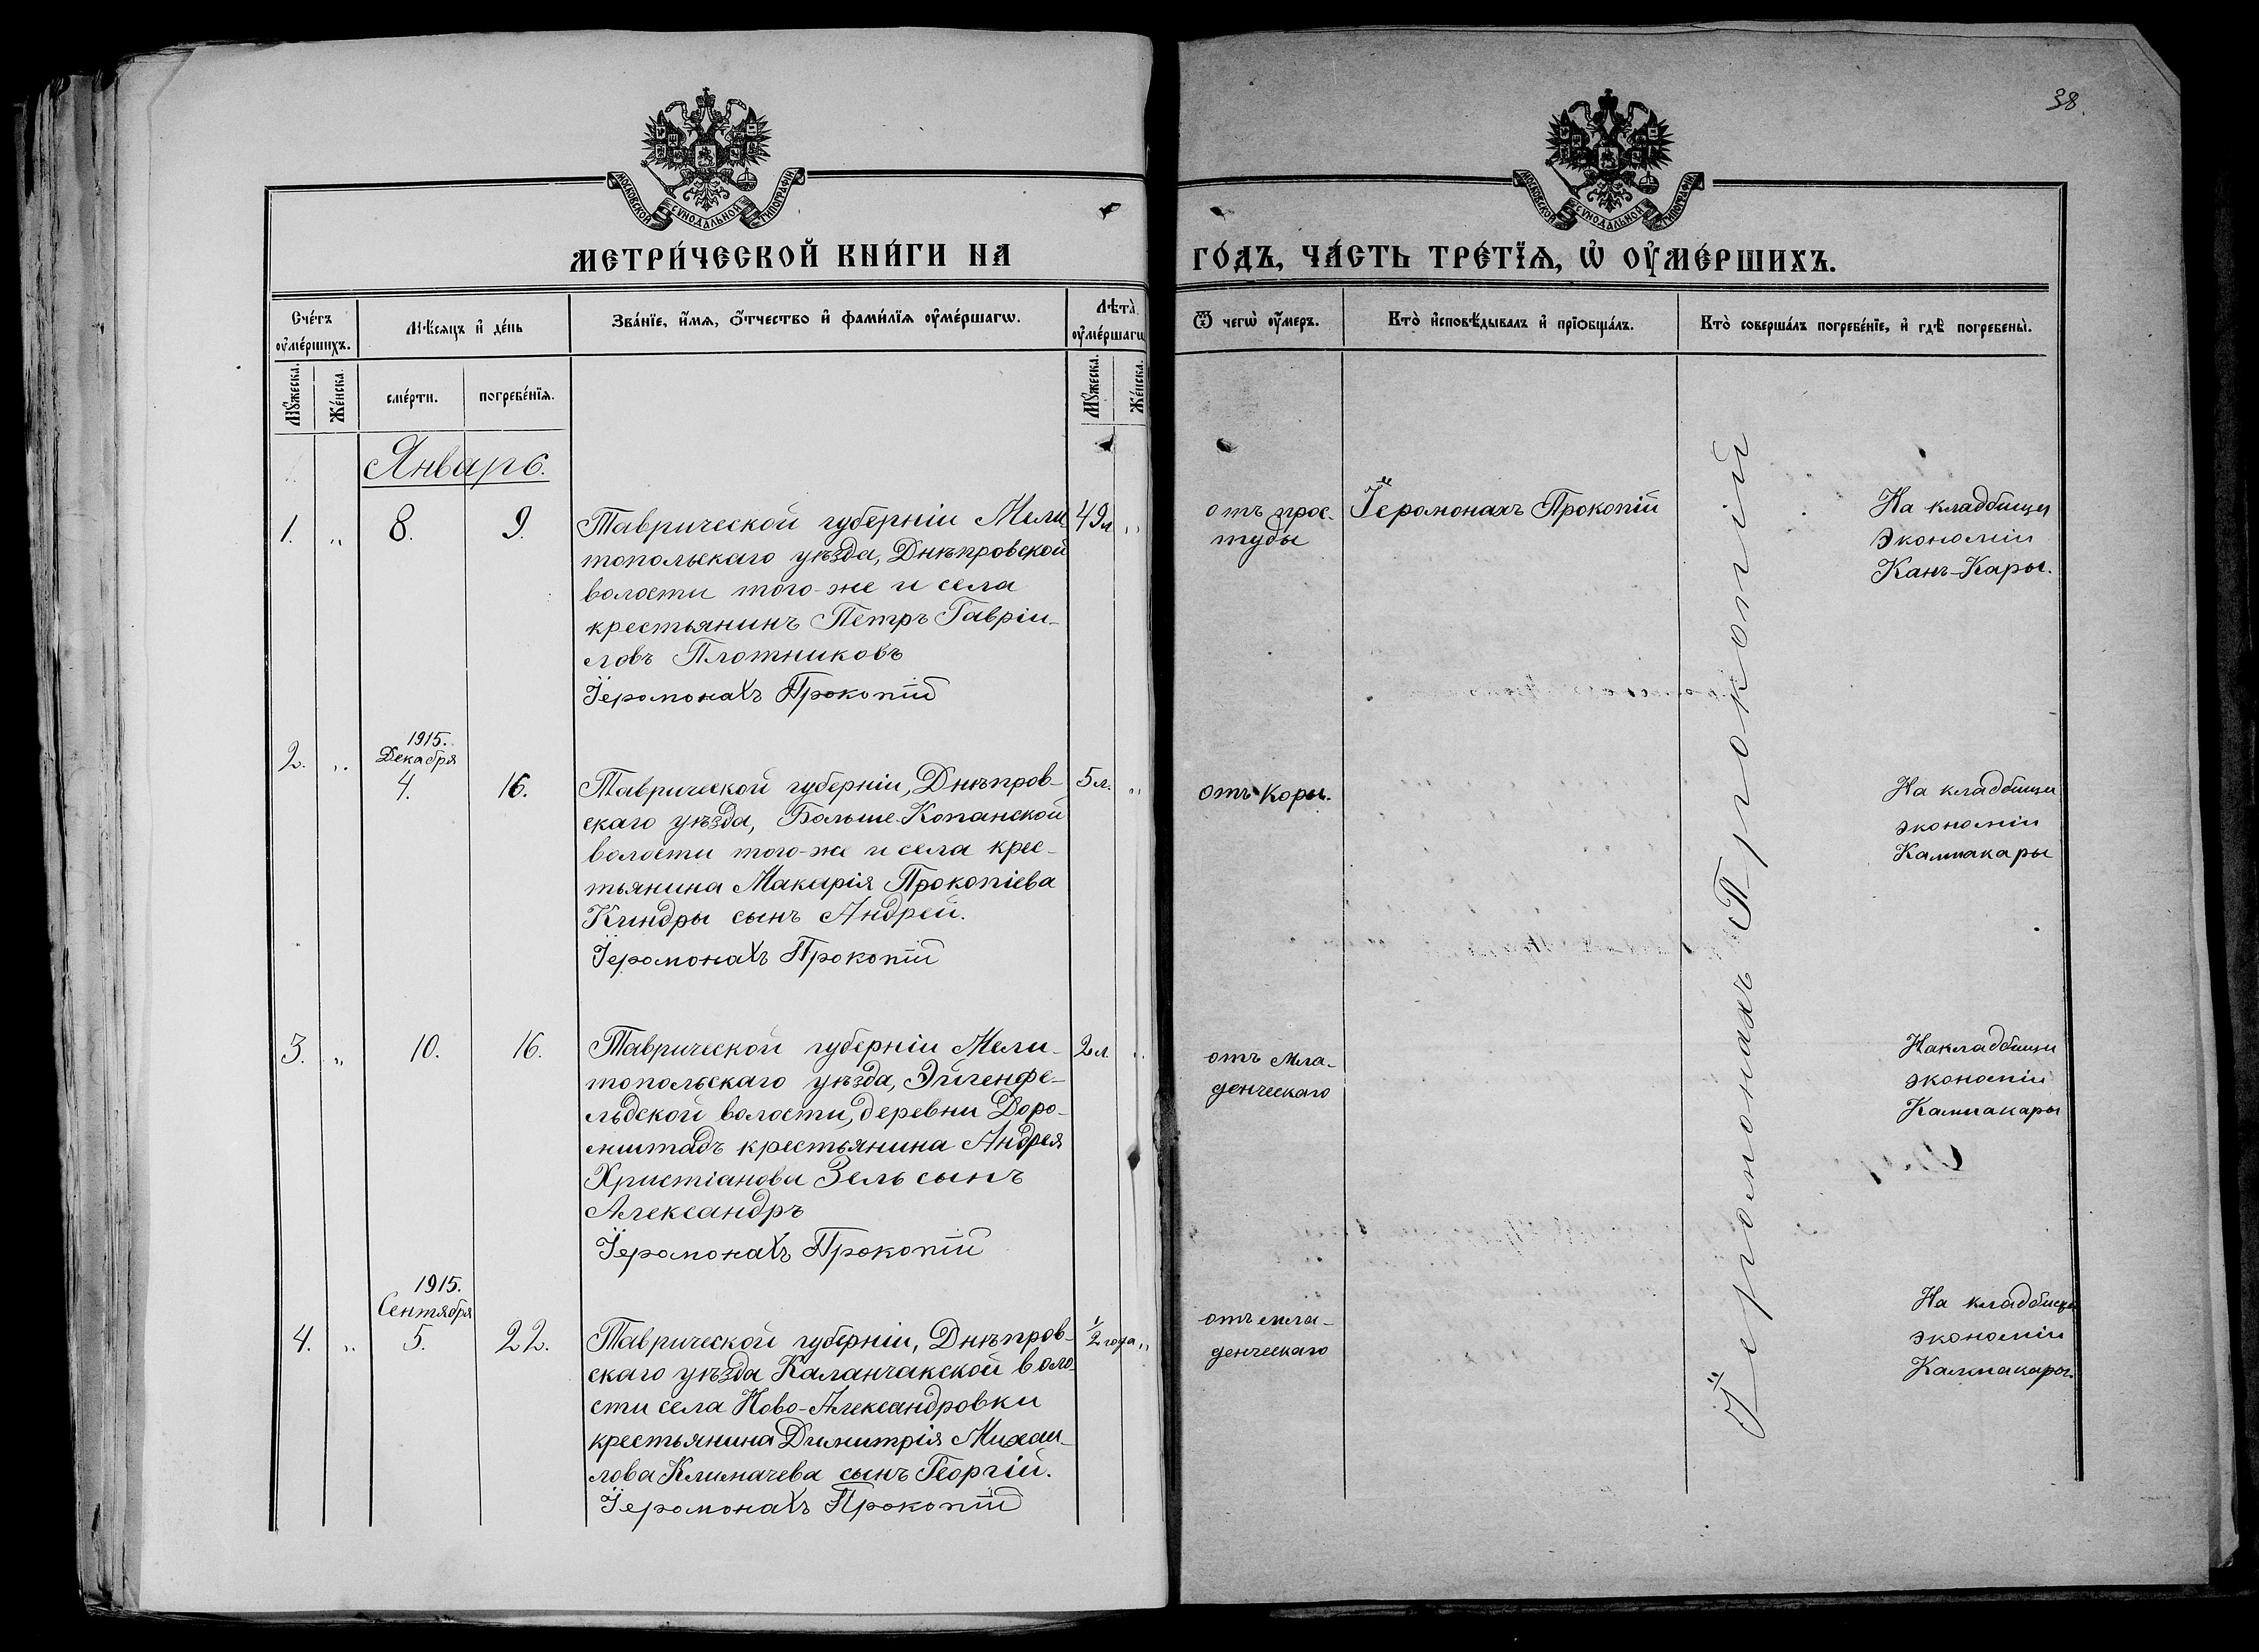 38.
МОСКОВСКОЙ СУНОДАЛЬНОЙ ТИПОГРАФІИ
МОСКОВСКОЙ СУНОДАЛЬНОЙ ТИПОГРАФІИ
МЕТРИ́ЧЕСКОЙ КНИ́ГИ НА
ГО́ДЪ, ЧА́СТЬ ТРЕ́ТЇѦ, Ѡ҆ ОУ҆МЕ́РШИХЪ.
Сче́тъ оу҆ме́ршихъ.
Мѣ́сяцъ и҆ де́нь
Зва́нїе, и҆́мѧ, ѻ҆́тчество и҆ фами́лїѧ оу҆ме́ршагѡ.
Лѣта̀ оу҆ме́ршагѡ
Ѿ чегѡ̀ оу҆́меръ.
Кто̀ и҆сповѣ́дывалъ и҆ прїѻбща́лъ.
Кто̀ соверша́лъ погребе́нїе, и҆ гдѣ̀ погребены̀.
Мꙋ́жеска.
Же́нска.
сме́рти.
погребе́нїѧ.
Мꙋ́жеска.
Же́нска.
Январь.
1. „ 8. 9.
Таврической губерніи Мели-
топольскаго уѣзда, Днѣпровской
волости того-же и села
крестьянинъ Петръ Гавріи-
ловъ Плотниковъ
Іеромонахъ Прокопій
49 л „
отъ прос-
туды
Іеромонахъ Прокопій
На кладбищи
экономіи
Канъ-Кары.
2. „
1915.
Декабря
4. 16.
Таврической губерніи, Днѣпров-
скаго уѣзда, Больше-Копанской
волости того-же и села крес-
тьянина Макарія Прокопіева
Киндры сынъ Андрей.
Іеромонахъ Прокопій
5 л. „
отъ Коры.
На кладбищи
экономіи
Калмакары
3. „ 10. 16.
Таврической губерніи Мели-
топольскаго уѣзда, Эйгенфе-
льдской волости, деревни Доро-
мштадъ крестьянина Андрея
Христіанова Зель сынъ
Александръ
Іеромонахъ Прокопій
2 л „
отъ мла-
денческаго
На кладбищи
экономіи
Калмакары
4. „
1915.
Сентября
5. 22.
Таврической губерніи, Днѣпров-
скаго уѣзда Каланчакской воло-
сти села Ново-Александровки
крестьянина Димитрія Михаи-
лова Климачева сынъ Георгій.
Іеромонахъ Прокопій
1/2 года „
отъ мла-
денческаго
На кладбищи
экономіи
Калмакары.
Іеромонахъ Прокопій